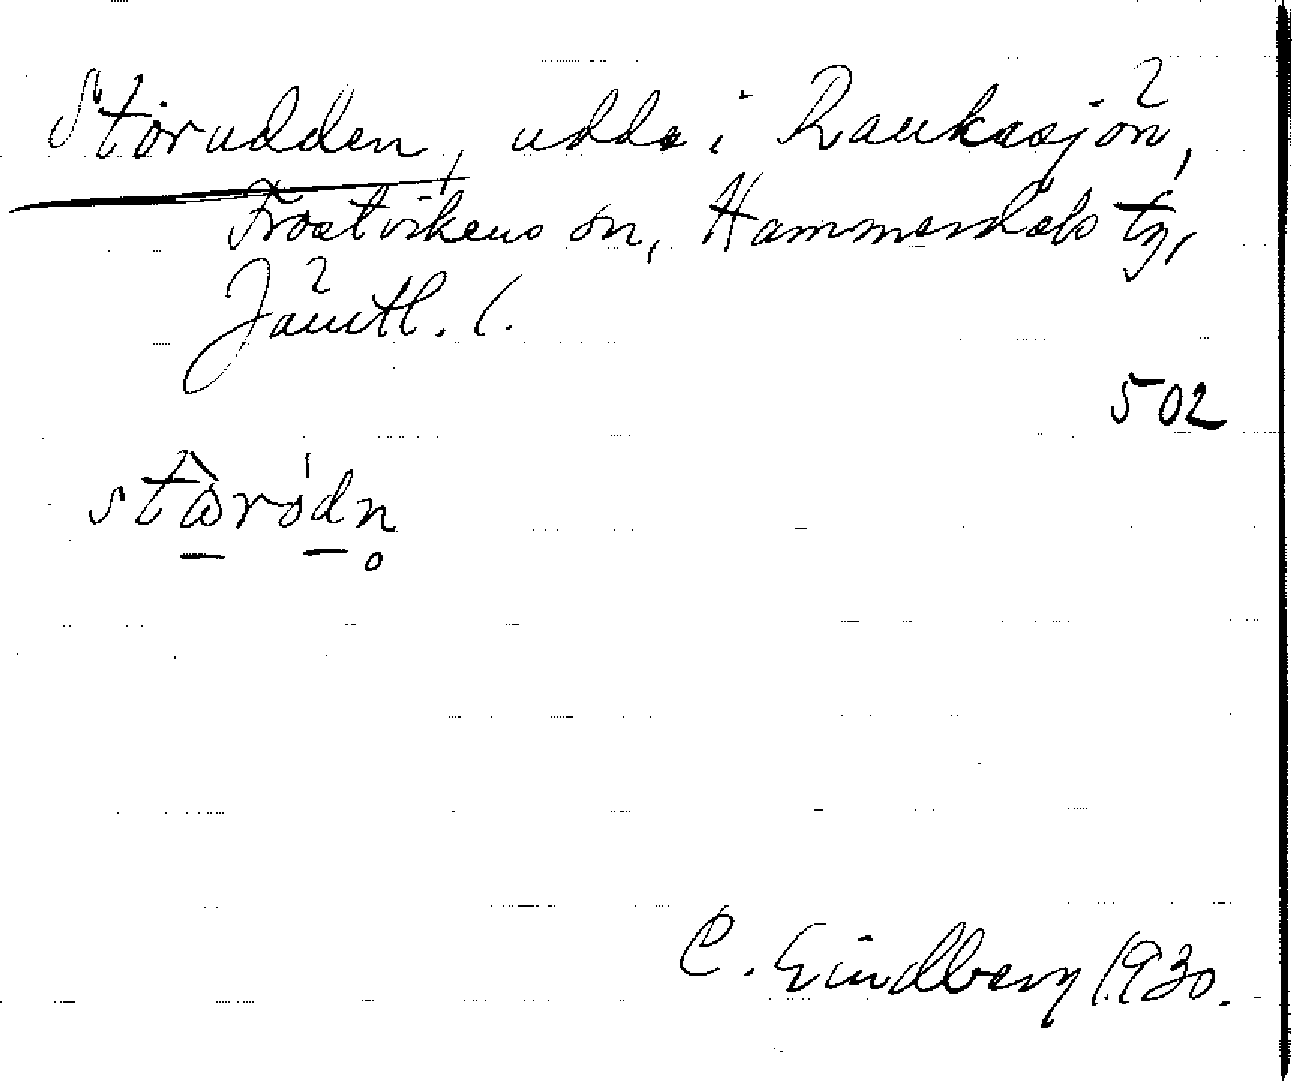 Störudden, udde i Raukasjön,
Frostvikens sn, Hammerdals tg,
Jämtl. l.
502
stɷ̀rødn̥
C. Lindberg 1930.